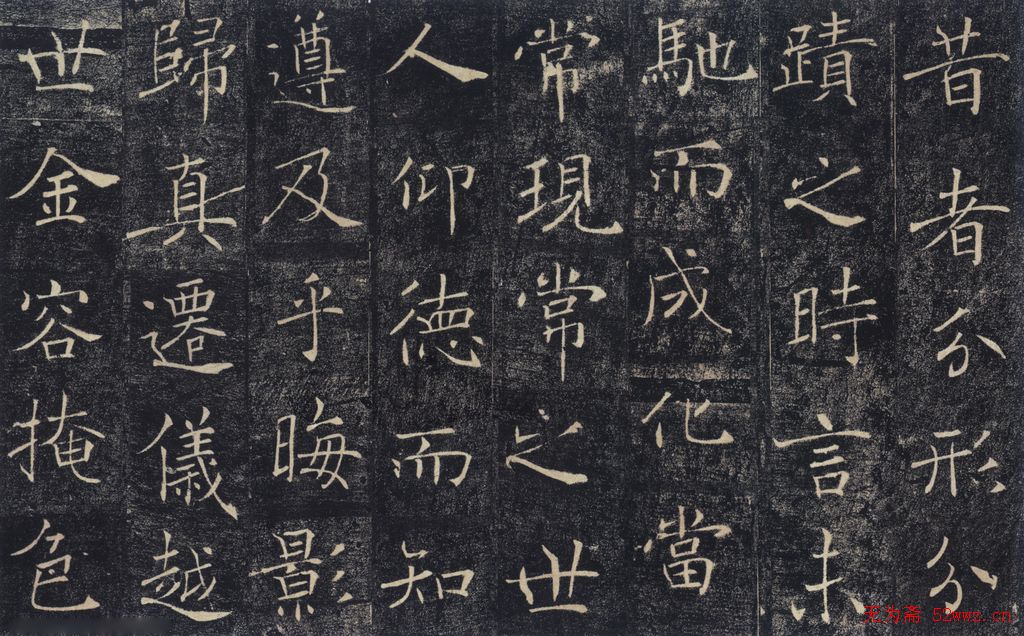 昔者分形分
蹟之時言未
馳而成化當
常現常之世
人仰德而知
遵及乎晦影
歸真遷儀越
世金容掩色
无为斋 52wwz.cn